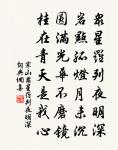 衆星羅列夜明深
岩點孤燈月未沉
圓滿光華不磨鏡
挂在青天是我心
寒山衆星羅列夜明深